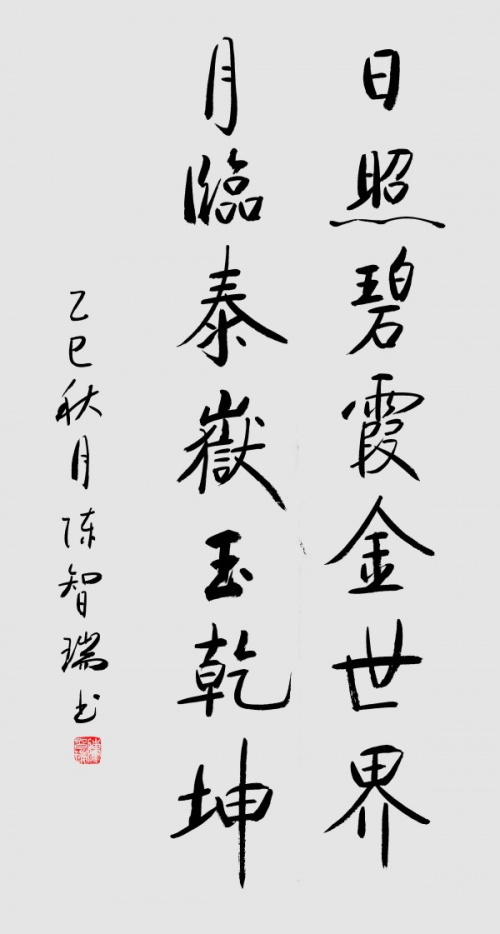 日照碧霞金世界
月臨泰嶽玉乾坤
乙巳秋月陈智瑞书